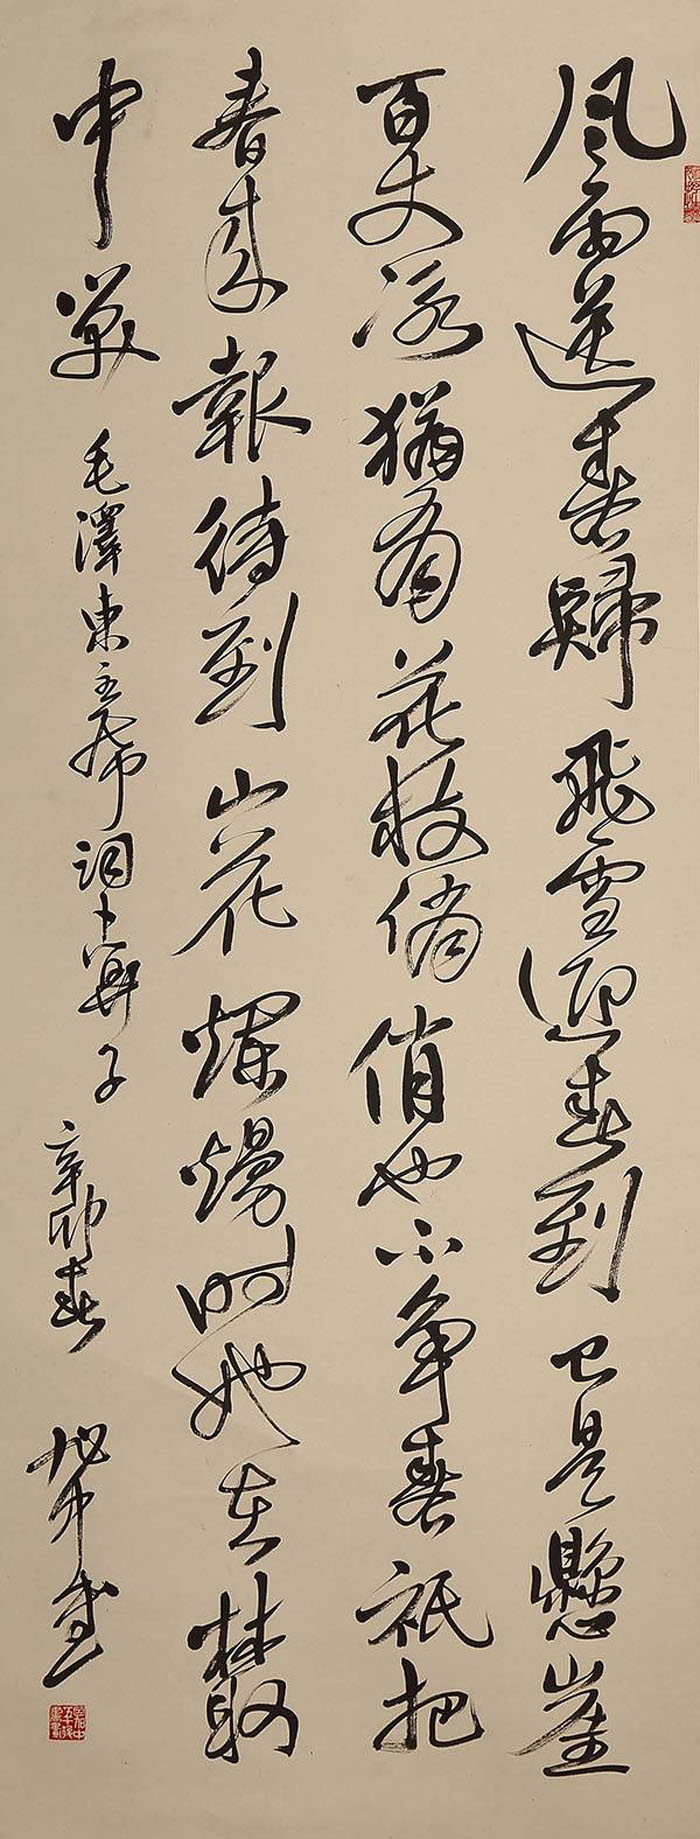 风雨送春歸飛雪迎春到已是懸崖
百丈冰猶有花枝俏俏也不争春祇把
春来報待到山花爛熳时她在叢
中笑 毛澤東主席詞卜算子 辛卯春 旭中書